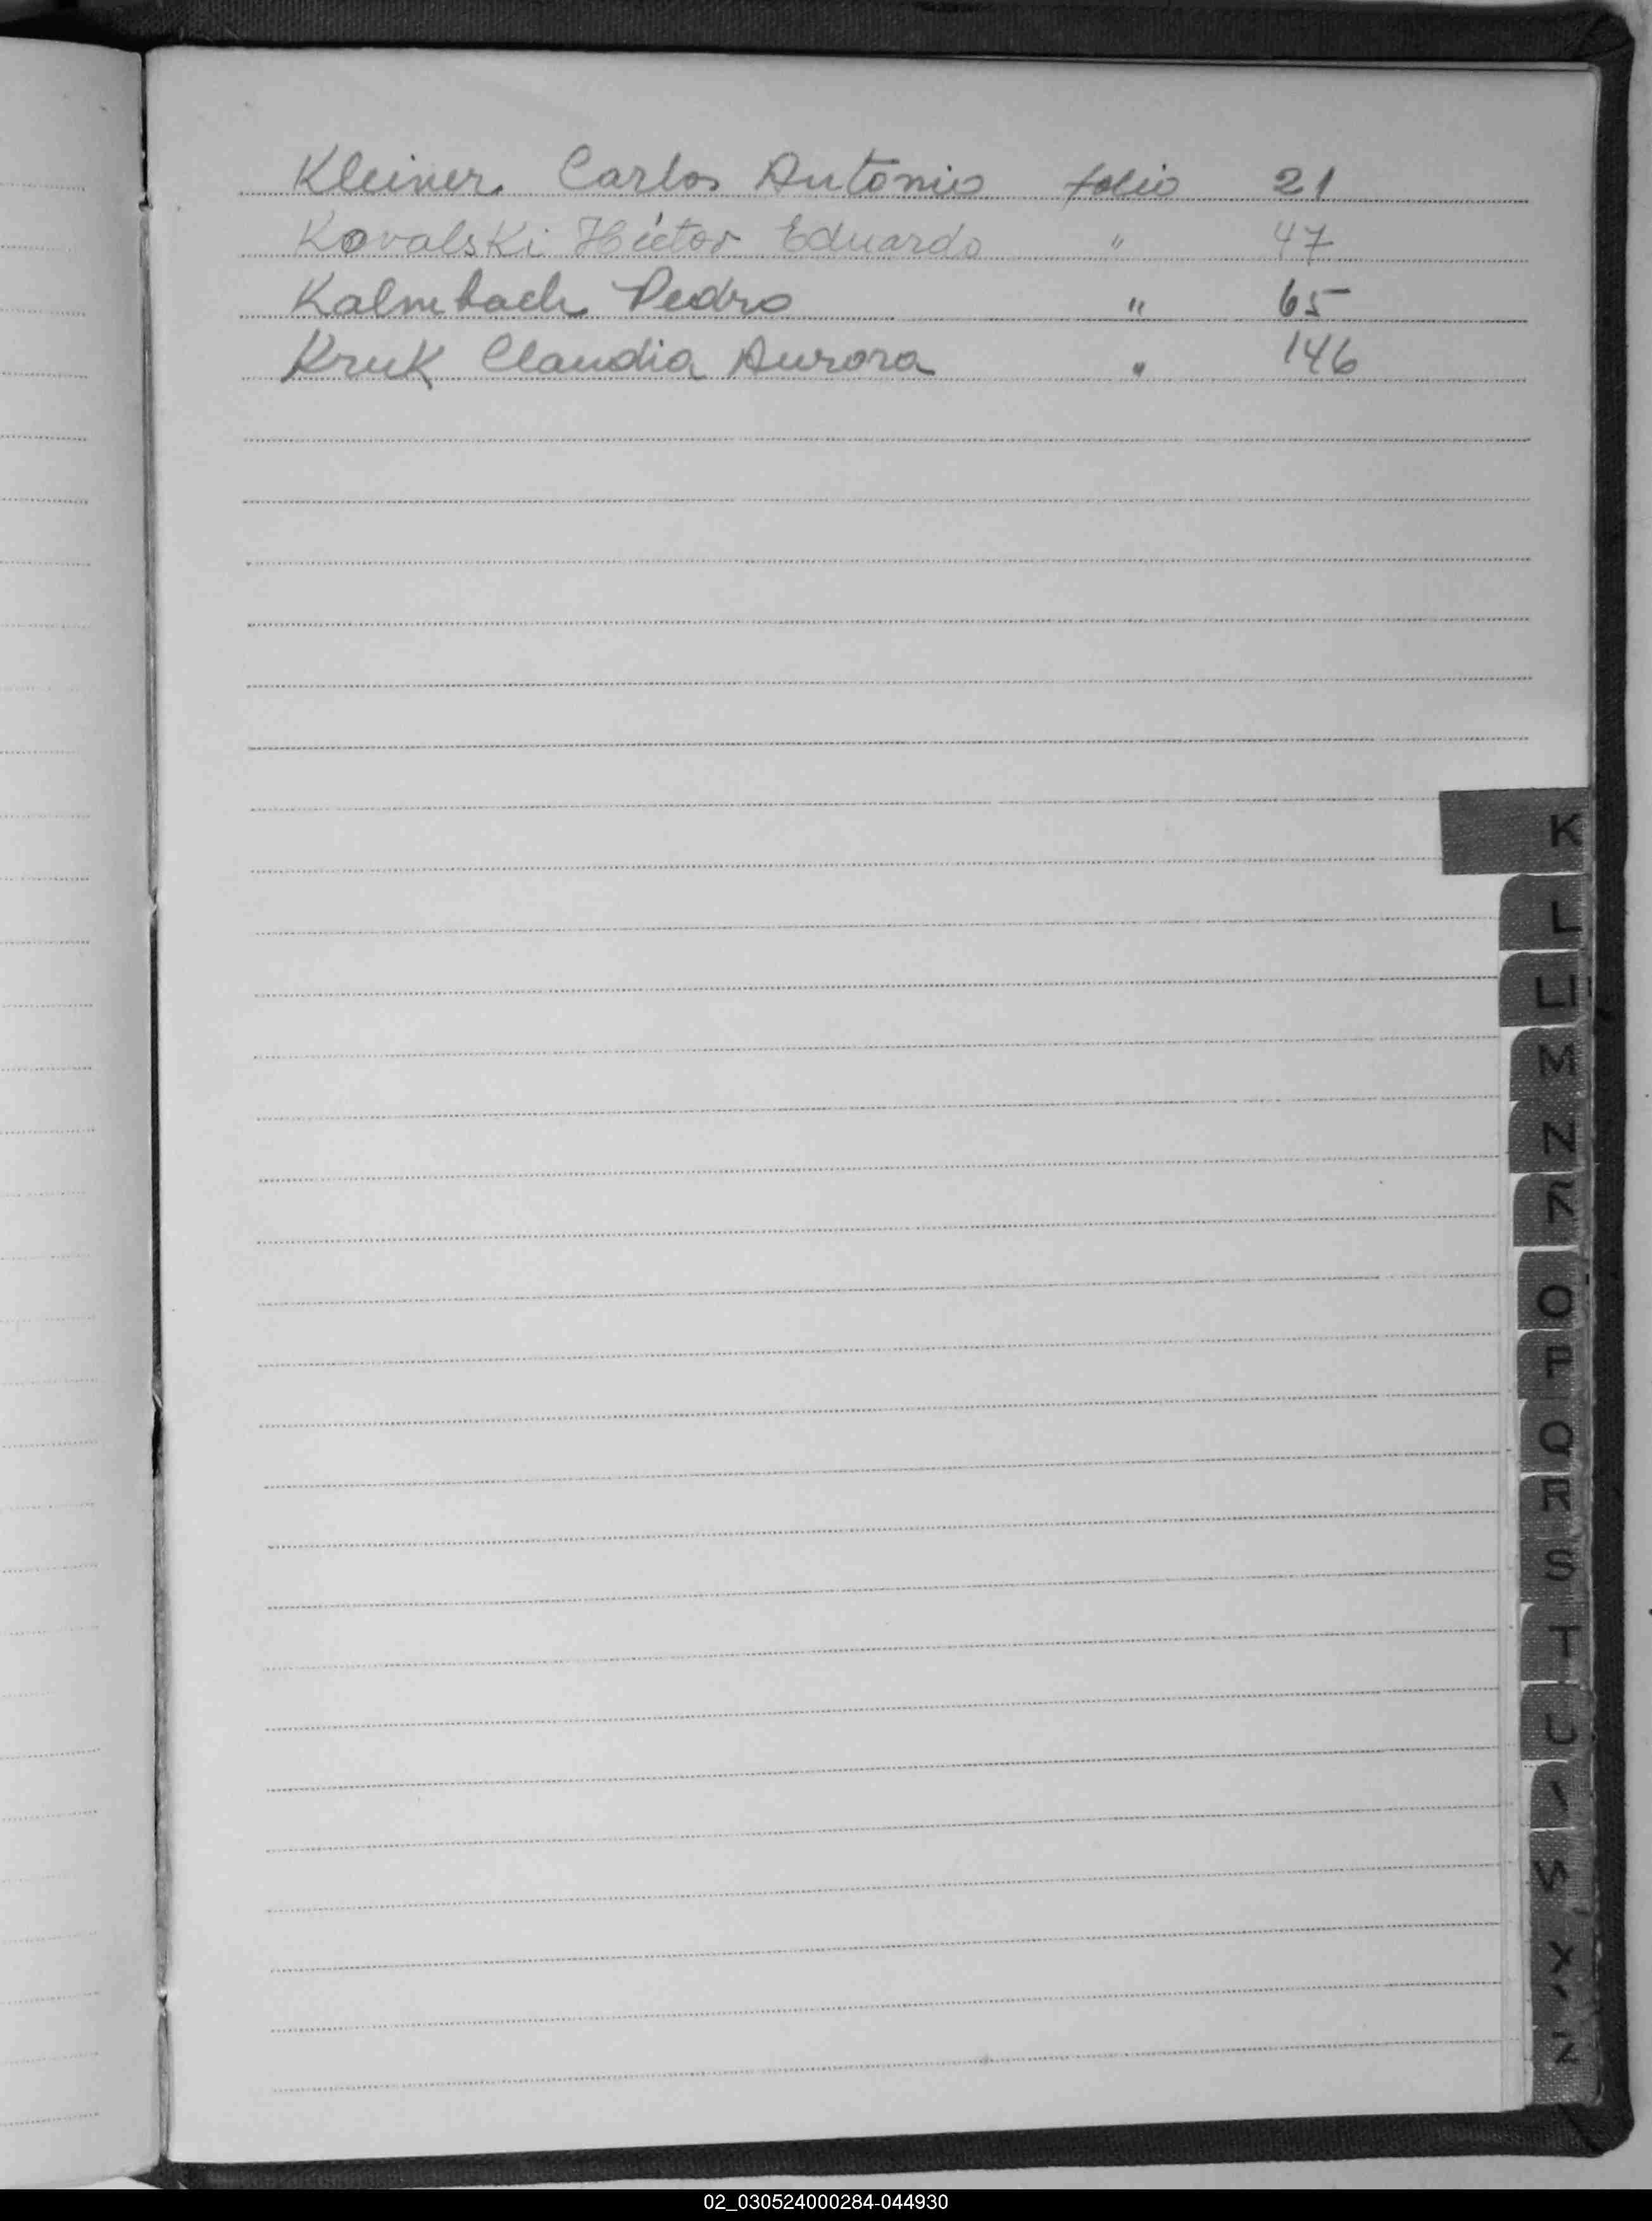 Kleiner Carlos Antonio folio 21
Kovalski Héctor Eduardo " 47
Kalmbach Pedro " 65
Kruk Claudia Aurora " 146
K
L
LL
M
N
Ñ
O
P
Q
R
S
T
U
V
W
X
Z
02_030524000284-044930